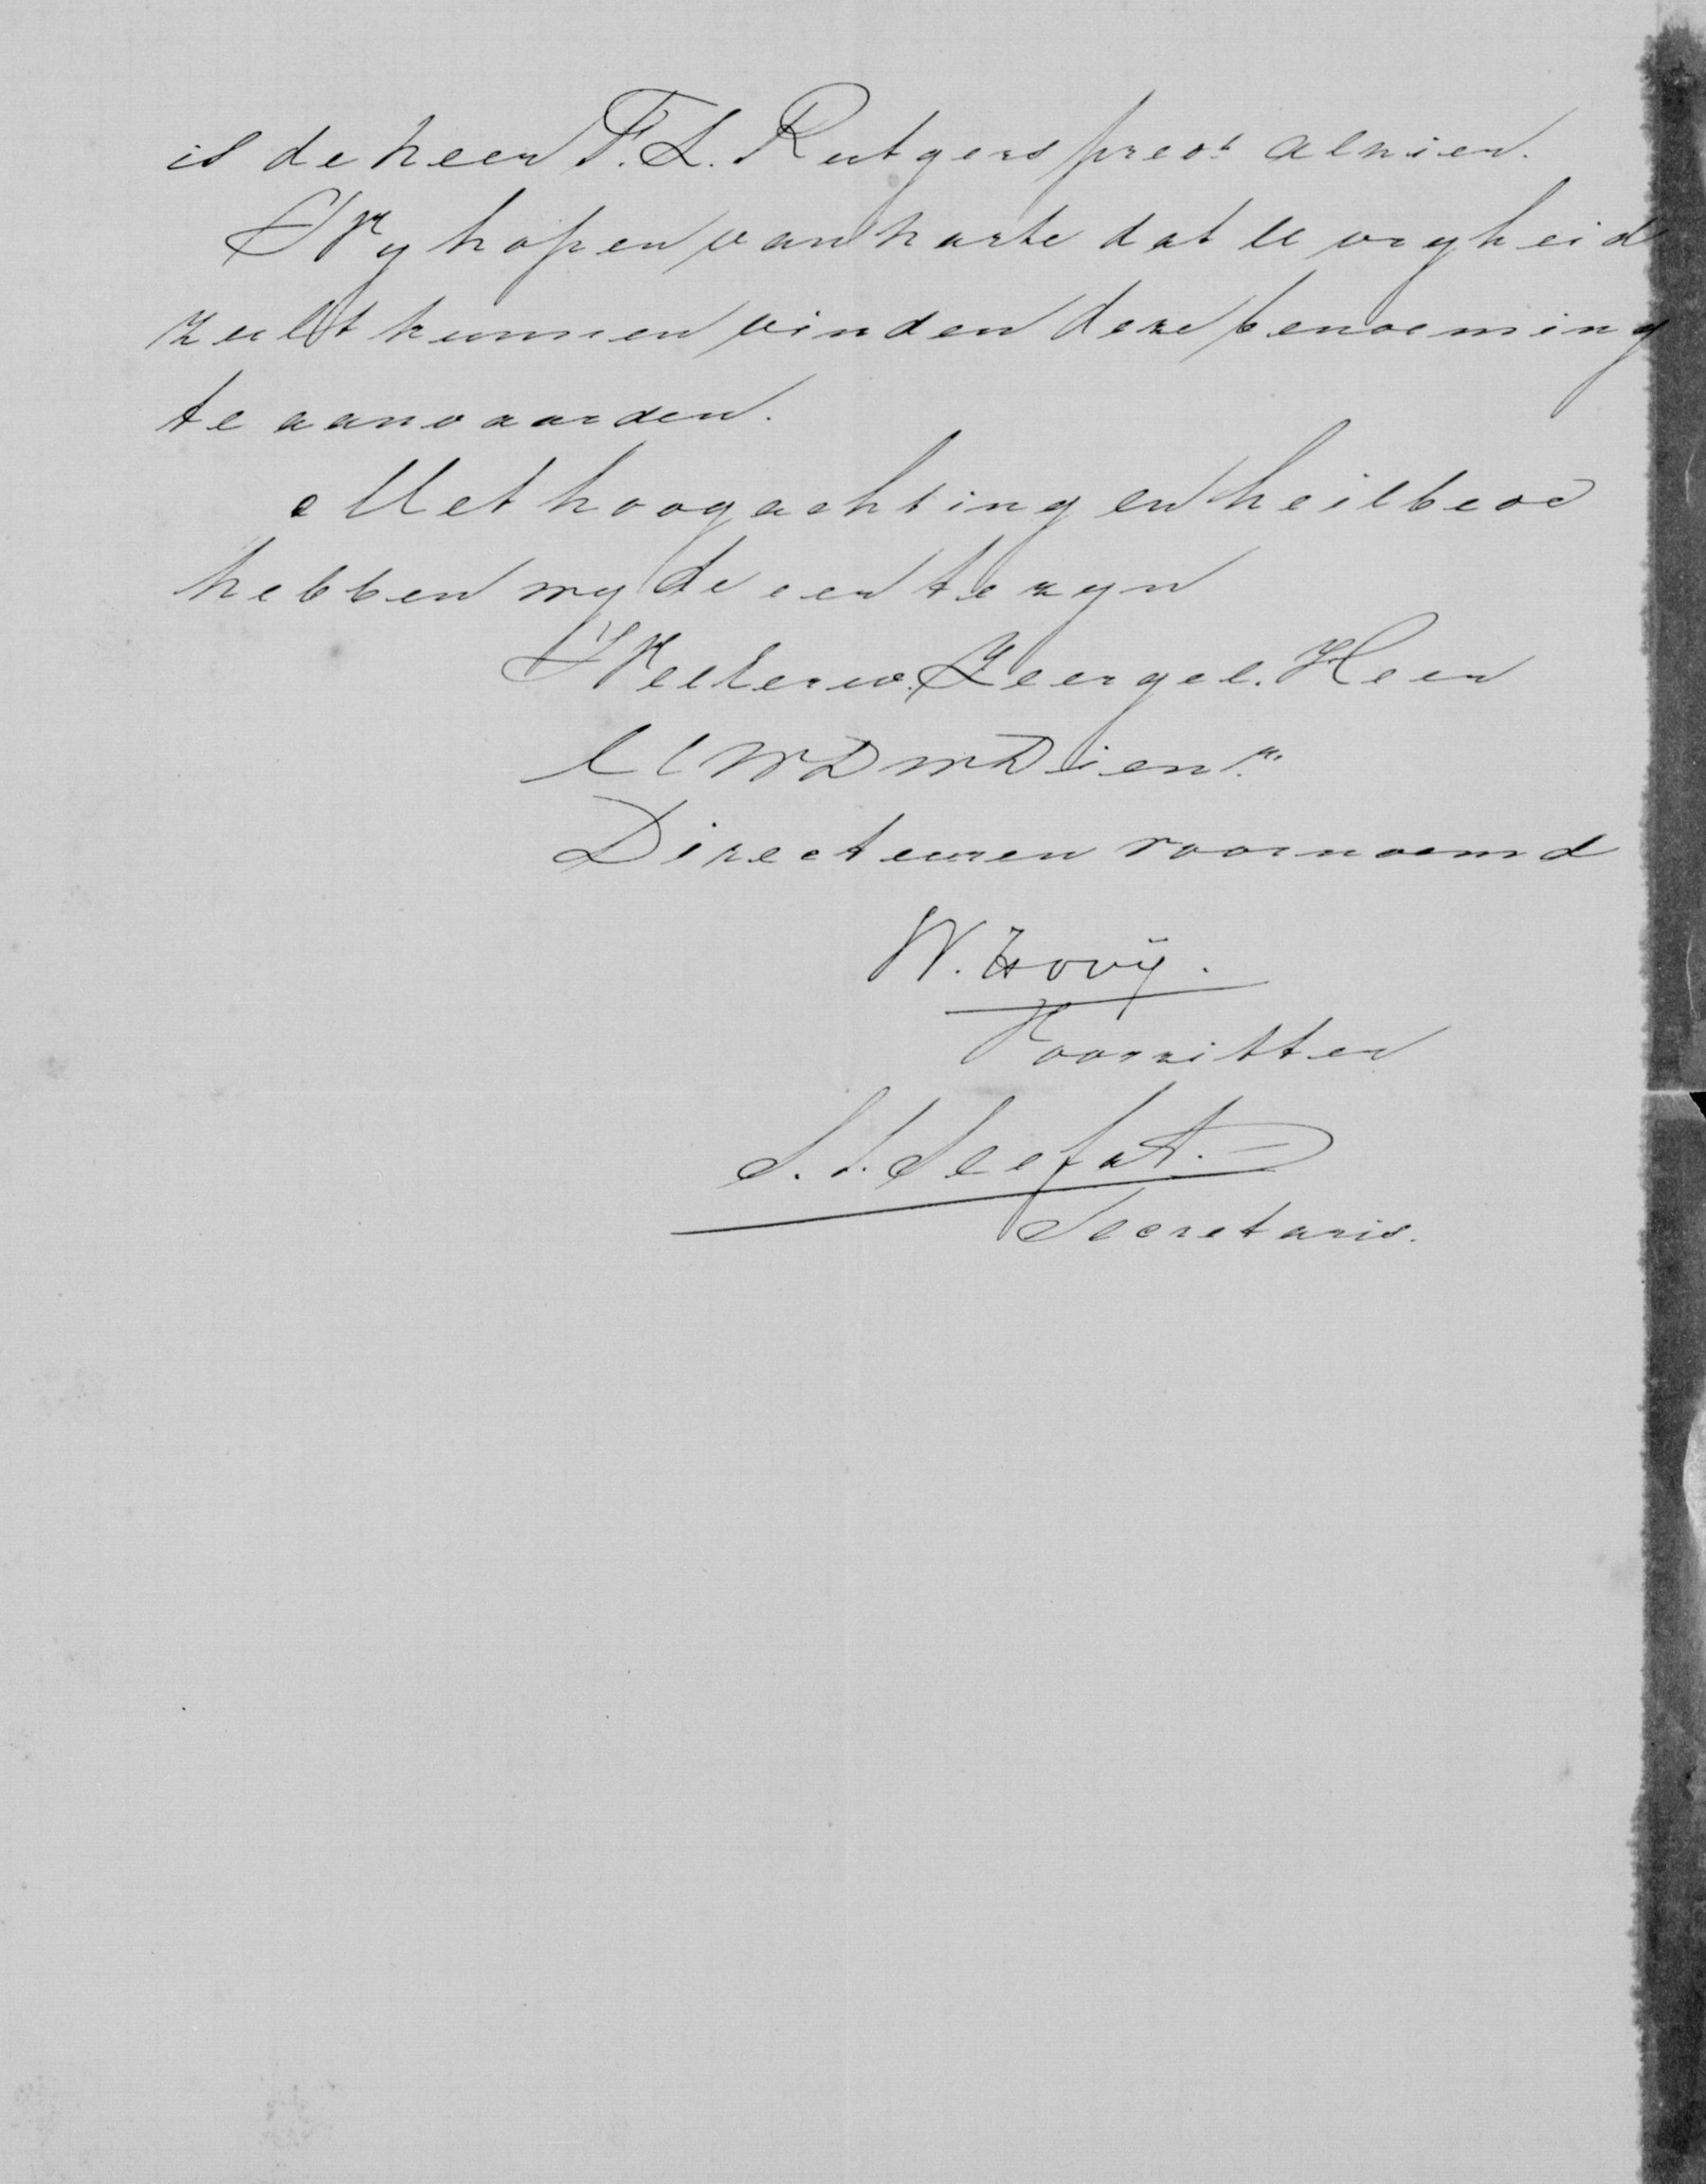 is de heer F. L. Rutgers pred<sup>t</sup> alhier.
Wy hopen van harte dat U vryheid
zult kunnen vinden deze benoeming
te aanvaarden.
Met hoogachting en heilbede
hebben wy de eer te zyn
WelEerw. Zeergel. Heer
UWDWDien<sup>n</sup>
Directeuren voornoemd
W. Hovÿ.
Voorzitter
S. J. Seefat.
Secretaris.